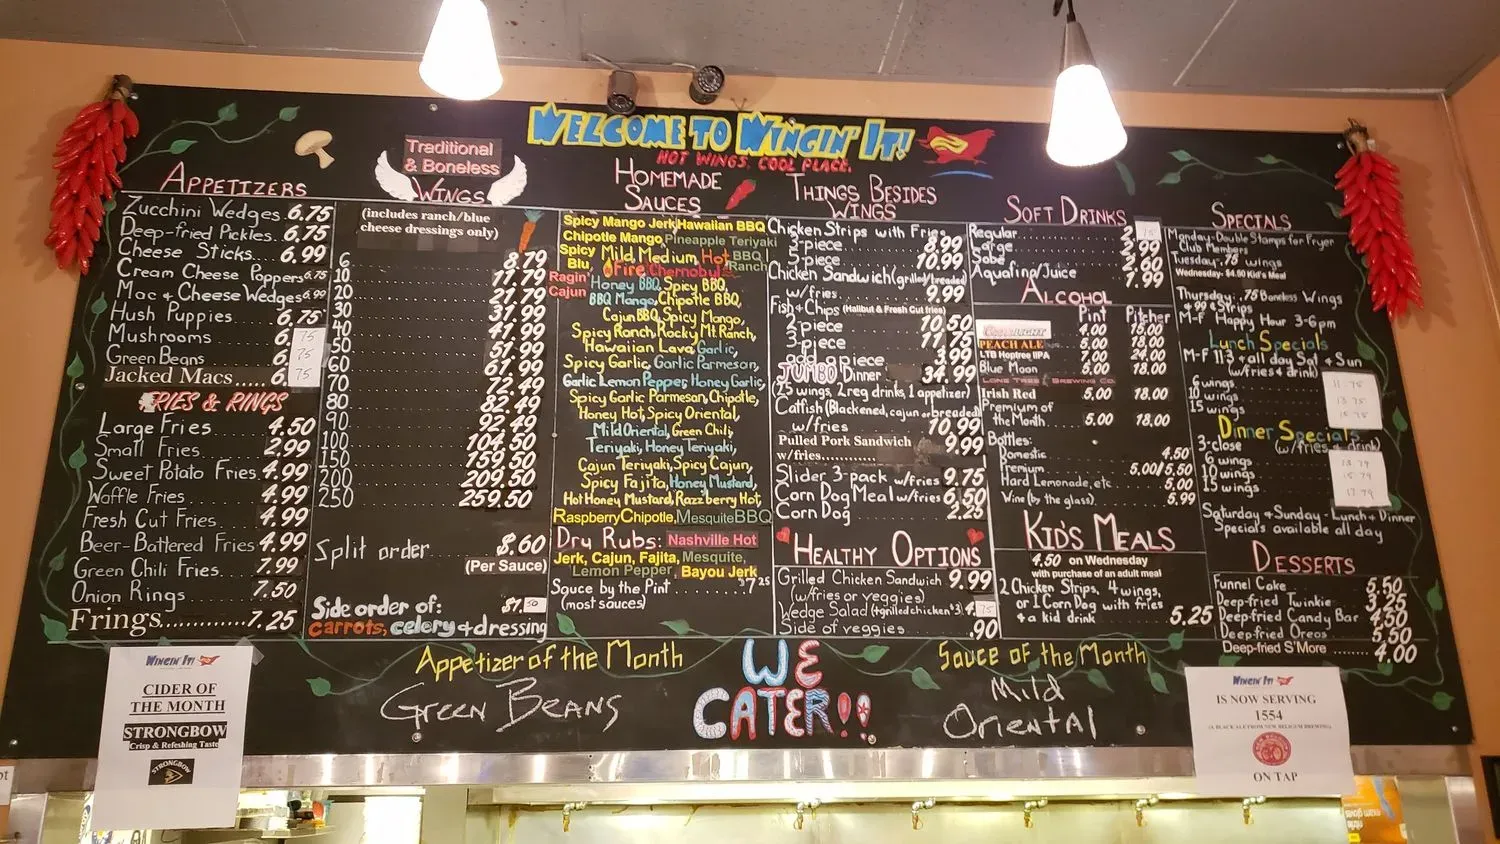 WELCOME TO WINGIN' IT!
HOT WINGS, COOL PLACE.
APPETIZERS
Zucchini Wedges 6.75
Deep-fried Pickles 6.75
Cheese Sticks 6.99
Cream Cheese Poppers 6.75
Mac & Cheese Wedges 6.99
Hush Puppies 6.75
Mushrooms 6.75
Green Beans 6.75
Jacked Macs..... 6.75
FRIES & RINGS
Large Fries 4.50
Small Fries 2.99
Sweet Potato Fries 4.99
Waffle Fries 4.99
Fresh Cut Fries 4.99
Beer-Battered Fries 4.99
Green Chili Fries 7.99
Onion Rings 7.50
Frings............. 7.25
Traditional
& Boneless
WINGS
(includes ranch/blue
cheese dressings only)
6 8.79
10 11.79
20 21.79
30 31.99
40 41.99
50 51.99
60 67.99
70 72.49
80 82.49
90 92.49
100 104.50
150 159.50
200 209.50
250 259.50
Split order $.60
(Per Sauce)
Side order of: $1.50
carrots, celery & dressing
HOMEMADE
SAUCES
Spicy Mango Jerk Hawaiian BBQ
Chipotle Mango Pineapple Teriyaki
Spicy Blu Mild, Medium, Hot BBQ Ranch
Fire Chernobyl
Ragin' Cajun Honey BBQ, Spicy BBQ,
BBQ Mango, Chipotle BBQ,
Cajun BBQ, Spicy Mango,
Spicy Ranch, Rocky Mt. Ranch,
Hawaiian Lava, Garlic,
Spicy Garlic, Garlic Parmesan,
Garlic Lemon Pepper, Honey Garlic,
Spicy Garlic Parmesan, Chipotle,
Honey Hot, Spicy Oriental,
Mild Oriental, Green Chili,
Teriyaki, Honey Teriyaki,
Cajun Teriyaki, Spicy Cajun,
Spicy Fajita, Honey Mustard,
Hot Honey Mustard, Razzberry Hot,
Raspberry Chipotle, Mesquite BBQ
Dry Rubs: Nashville Hot
Jerk, Cajun, Fajita, Mesquite,
Lemon Pepper, Bayou Jerk
Sauce by the Pint $7.25
(most sauces)
THINGS BESIDES
WINGS
Chicken Strips with Fries
3-piece 8.99
5-piece 10.99
Chicken Sandwich (grilled/breaded)
w/fries 9.99
Fish & Chips (Halibut & Fresh Cut fries)
2-piece 10.50
3-piece 11.75
add a piece 3.99
JUMBO Dinner 34.99
(25 wings, 2 reg drinks, 1 appetizer)
Catfish (Blackened, cajun or breaded)
w/fries 10.99
Pulled Pork Sandwich
w/fries........... 9.99
Slider 3-pack w/fries 9.75
Corn Dog Meal w/fries 6.50
Corn Dog 2.25
HEALTHY OPTIONS
Grilled Chicken Sandwich 9.99
(w/fries or veggies)
Wedge Salad (+grilled chicken $3) 4.75
Side of veggies .90
SOFT DRINKS
Regular
Large 2.99
Sobe 2.60
Aquafina/Juice 1.99
ALCOHOL
Pint Pitcher
Coors LIGHT 4.00 15.00
PEACH ALE 5.00 18.00
LTB Hoptree IIPA 7.00 24.00
Blue Moon 5.00 18.00
LONE TREE BREWING CO.
Irish Red 5.00 18.00
Premium of
the Month 5.00 18.00
Bottles:
Domestic 4.50
Premium 5.00/5.50
Hard Lemonade, etc. 5.00
Wine (by the glass) 5.99
KID'S MEALS
4.50 on Wednesday
with purchase of an adult meal
2 Chicken Strips, 4 wings,
or 1 Corn Dog with fries
& a kid drink 5.25
SPECIALS
Monday: Double Stamps for Fryer
Club Members
Tuesday: .75 wings
Wednesday- $4.50 Kid's Meal
Thursday: .75 Boneless Wings
& .99 Strips
M-F Happy Hour 3-6pm
Lunch Specials
M-F 11-3 & all day Sat & Sun
(w/fries & drink)
6 wings 11.75
10 wings 13.75
15 wings
Dinner Specials
3-close (w/fries & drink)
6 wings 13.79
10 wings 15.79
15 wings 17.79
Saturday & Sunday - Lunch & Dinner
Specials available all day
DESSERTS
Funnel Cake 5.50
Deep-fried Twinkie 3.25
Deep-fried Candy Bar 4.50
Deep-fried Oreos 5.50
Deep-fried S'More ........ 4.00
Appetizer of the Month
Green Beans
WE
CATER!!
Sauce of the Month
Mild
Oriental
WINGIN' IT!
CIDER OF
THE MONTH
STRONGBOW
Crisp & Refeshing Taste
STRONGBOW
WINGIN' IT!
IS NOW SERVING
1554
(A BLACK ALE FROM NEW BELGIUM BREWING)
ON TAP